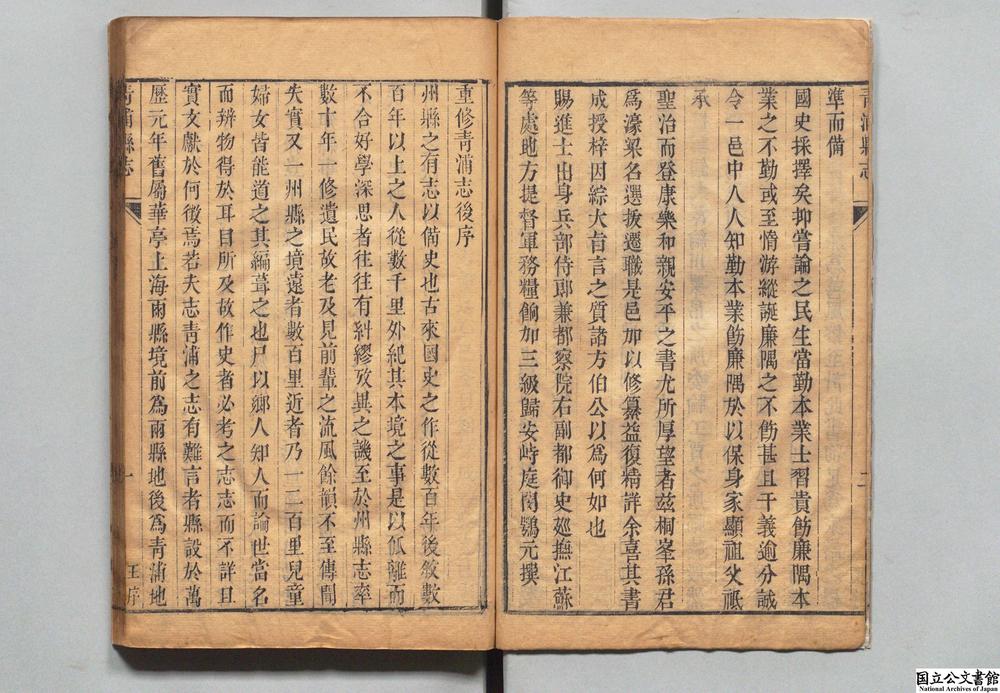 青浦縣志
二
準而備
國史採擇矣抑嘗論之民生當勤本業士習貴飭廉隅本
業之不勤或至惰游縱誕廉隅之不飭甚且干義逾分誠
令一邑中人人知勤本業飭廉隅於以保身家顯祖父祗
承
聖治而登康樂和親安平之書尤所厚望者玆桐峯孫君
爲濠梁名選拔遷職是邑加以修纂益復精詳余喜其書
成授梓因綜大旨言之質諸方伯公以為何如也
賜進士出身兵部侍郎兼都察院右副都御史廵撫江蘇
等處地方提督軍務糧餉加三級歸安峙庭閔鶚元撰
重修靑浦志後序
州縣之有志以備史也古來國史之作從數百年後敘數
百年以上之人從數千里外紀其本境之事是以佹離而
不合好學深思者往往有糾繆攷異之譏至於州縣志率
數十年一修遺民故老及見前輩之流風餘韻不至傳聞
失實又一州縣之境遠者數百里近者乃一二百里兒童
婦女皆能道之其編葺之也尺以鄉人知人而論世當名
而辨物得於耳目所及故作史者必考之志志而不詳且
實文獻於何徵焉若夫志靑浦之志有難言者縣設於萬
歷元年舊屬華亭上海兩縣境前為兩縣地後為靑浦地
靑浦縣志
一
王序
国立公文書館
National Archives of Japan